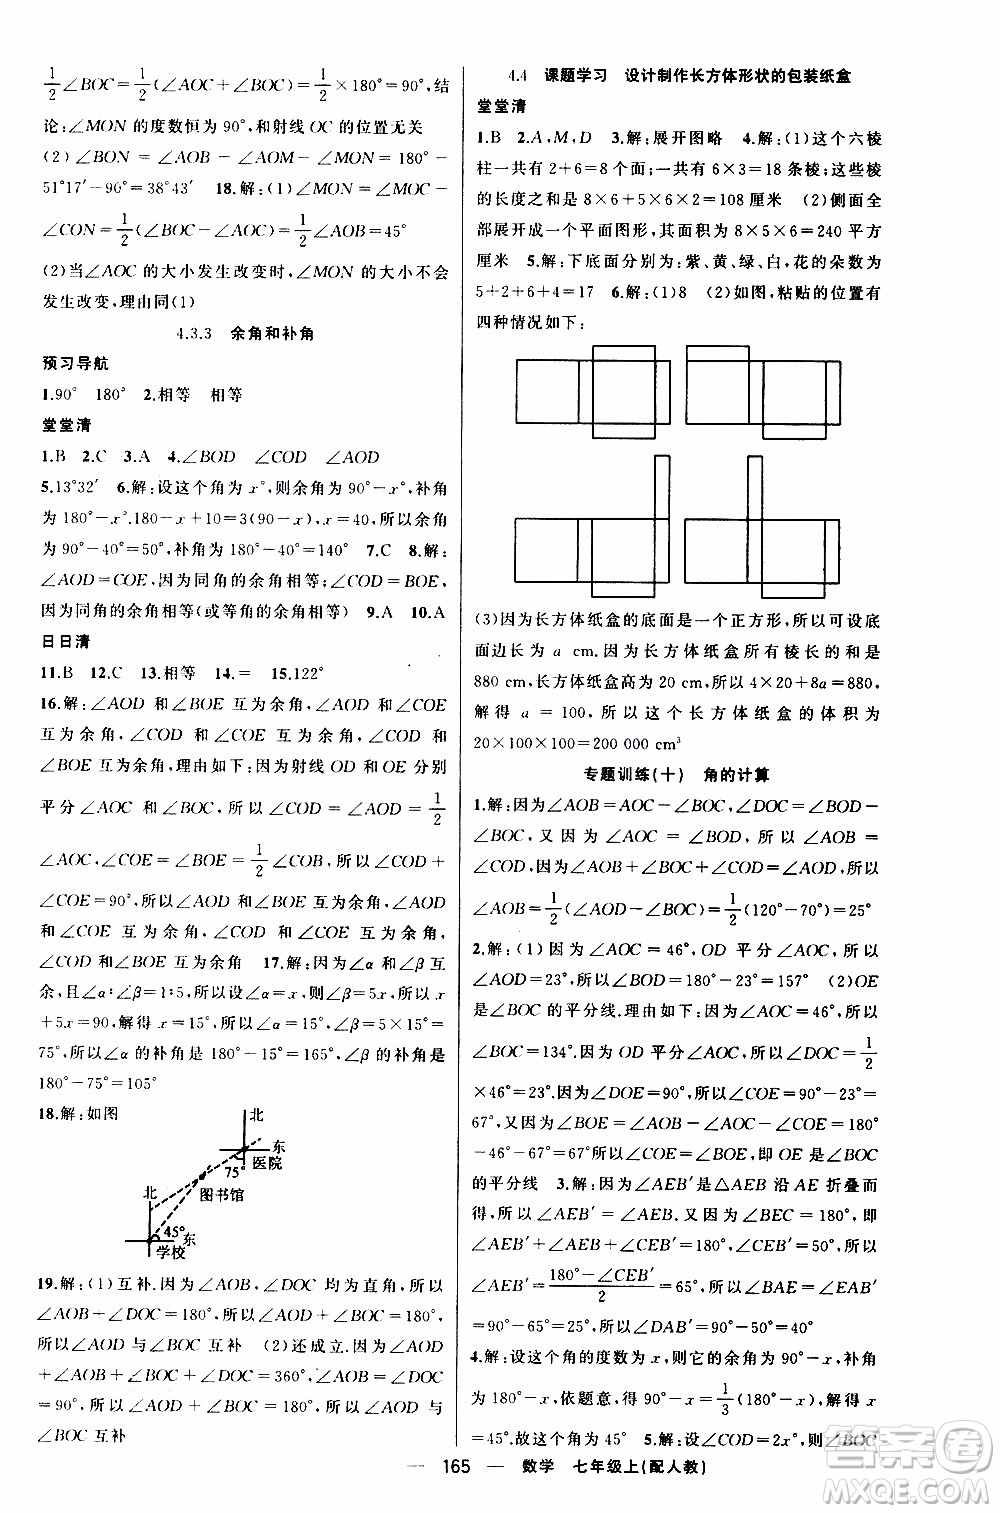 1/2∠BOC=1/2(∠AOC+∠BOC)=1/2×180°=90°,结
论:∠MON的度数恒为90°,和射线OC的位置无关
(2)∠BON=∠AOB-∠AOM-∠MON=180°-
51°17′-90°=38°43′ 18.解:(1)∠MON=∠MOC-
∠CON=1/2(∠BOC-∠AOC)=1/2∠AOB=45°
(2)当∠AOC的大小发生改变时,∠MON的大小不会
发生改变,理由同(1)
4.3.3 余角和补角
预习导航
1.90° 180° 2.相等 相等
堂堂清
1.B 2.C 3.A 4.∠BOD ∠COD ∠AOD
5.13°32′ 6.解:设这个角为x°,则余角为90°-x°,补角
为180°-x°.180-x+10=3(90-x),x=40,所以余角
为90°-40°=50°,补角为180°-40°=140° 7.C 8.解:
∠AOD=COE,因为同角的余角相等;∠COD=BOE,
因为同角的余角相等(或等角的余角相等) 9.A 10.A
日日清
11.B 12.C 13.相等 14.= 15.122°
16.解:∠AOD和∠BOE互为余角,∠AOD和∠COE
互为余角,∠COD和∠BOE互为余角,∠COD和
∠BOE互为余角.因为射线OD和OE分别
平分∠AOC和∠BOC,所以∠COD=∠AOD=1/2
∠AOC,∠COE=∠BOE=1/2∠COB,所以∠COD+
∠COE=90°,所以∠AOD与∠BOE互为余角,∠AOD
和∠COE互为余角,∠COD和∠COE互为余角,
∠COD和∠BOE互为余角 17.解:因为∠α和∠β互
余,且∠α:∠β=1:5,所以设∠α=x,则∠β=5x,所以x
+5x=90,解得x=15°,所以∠α=15°,∠β=5×15°=
75°,所以∠α的补角是180°-15°=165°,∠β的补角是
180°-75°=105°
18.解:如图
北
东
75°
医院
图书馆
北
45°
东
学校
19.解:(1)互补.因为∠AOB,∠DOC均为直角,所以
∠AOB+∠DOC=180°,所以∠AOD+∠BOC=180°,
所以∠AOD与∠BOC互补 (2)还成立.因为∠AOD
+∠AOB+∠BOC+∠DOC=360°,∠AOB=∠DOC
=90°,所以∠AOD+∠BOC=180°,所以∠AOD与
∠BOC互补
4.4 课题学习 设计制作长方体形状的包装纸盒
堂堂清
1.B 2.A,M,D 3.解:展开图略 4.解:(1)这个六棱
柱一共有2+6=8个面,一共有6×3=18条棱,这些棱
的长度之和是8×6+5×6×2=108厘米 (2)侧面全
部展开成一个平面图形,其面积为8×5×6=240平方
厘米 5.解:下底面分别为:紫、黄、绿、白,花的朵数为
5+2+6+4=17 6.解:(1)8 (2)如图,粘贴的位置有
四种情况如下:
(3)因为长方体纸盒的底面是一个正方形,所以可设底
面边长为a cm.因为长方体纸盒所有棱长的和是
880 cm,长方体纸盒高为20 cm,所以4×20+8a=880,
解得a=100,所以这个长方体纸盒的体积为
20×100×100=200 000 cm³
专题训练(十) 角的计算
1.解:因为∠AOB=AOC-∠BOC,∠DOC=∠BOD-
∠BOC,又因为∠AOC=∠BOD,所以∠AOB=
∠COD,因为∠AOB+∠BOC+∠COD=∠AOD,所以
∠AOB=1/2(∠AOD-∠BOC)=1/2(120°-70°)=25°
2.解:(1)因为∠AOC=46°,OD平分∠AOC,所以
∠AOD=23°,所以∠BOD=180°-23°=157° (2)OE
是∠BOC的平分线.理由如下:因为∠AOC=46°,所以
∠BOC=134°.因为OD平分∠AOC,所以∠DOC=1/2
×46°=23°.因为∠DOE=90°,所以∠COE=90°-23°=
67°,所以∠BOE=∠AOB-∠AOC-∠COE=180°
-46°-67°=67°,所以∠BOE=∠COE,即OE是∠BOC
的平分线 3.解:因为∠AEB′是△AEB沿AE折叠而
得,所以∠AEB′=∠AEB.又因为∠BEC=180°,即
∠AEB′+∠AEB+∠CEB′=180°,又因为∠CEB′=50°,所以
∠AEB′=(180°-∠CEB′)/2=65°,所以∠BAE=∠EAB′
=90°-65°=25°,所以∠DAB′=90°-50°=40°
4.解:设这个角的度数为x,则它的余角为90°-x,补角
为180°-x,依题意,得90°-x=1/3(180°-x),解得x
=45°.故这个角为45° 5.解:设∠COD=2x°,则∠BOC
165 数学 七年级上(配人教)
答案圈
MXQE.COM